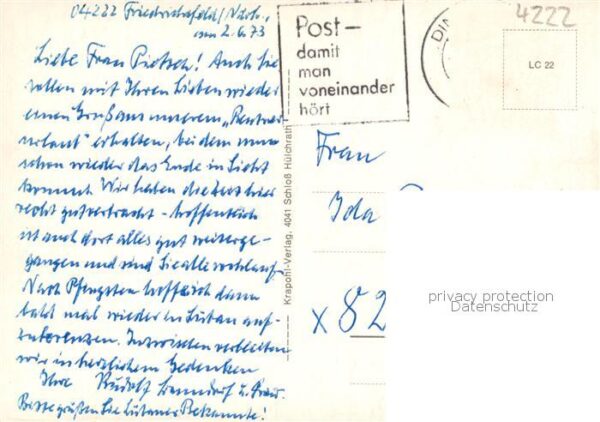 04222 Friedrichsfeld/Ndrh.,
am 2.6.73
Liebe Frau Pietsch! Auch Sie
sollen mit Ihren Lieben wieder
einen Gruß aus unserem "Rentner-
urlaub" erhalten, bei dem nun
schon wieder das Ende in Sicht
kommt. Wir haben die Zeit hier
recht gut verbracht - hoffentlich
ist auch dort alles gut weiterge-
gangen und sind Sie alle wohlauf.
Nach Pfingsten hoffe ich dann
bald mal wieder in aufzu-
kreuzen. Inzwischen verbleiben
wir in herzlichem Gedenken
Ihre Rudolf u. Frau.
Beste grüßen Sie Bekannte!
Krapohl-Verlag, 4041 Schloß Hülchrath
Post-
damit
man
voneinander
hört
DIN
4222
LC 22
Frau
Ida
x 82
privacy protection
Datenschutz